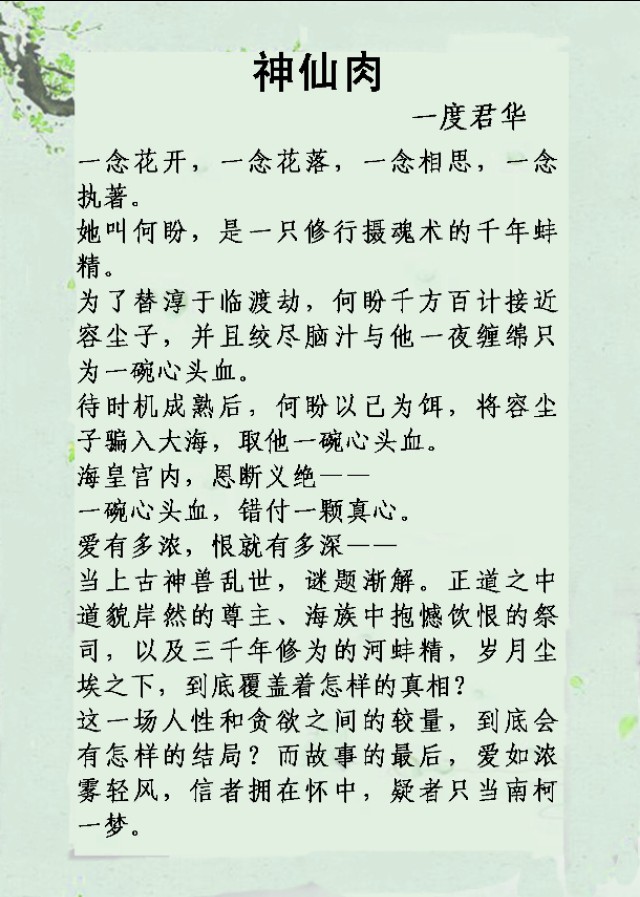 神仙肉
一度君华
一念花开，一念花落，一念相思，一念
执著。
她叫何盼，是一只修行摄魂术的千年蚌
精。
为了替淳于临渡劫，何盼千方百计接近
容尘子，并且绞尽脑汁与他一夜缠绵只
为一碗心头血。
待时机成熟后，何盼以己为饵，将容尘
子骗入大海，取他一碗心头血。
海皇宫内，恩断义绝——
一碗心头血，错付一颗真心。
爱有多浓，恨就有多深——
当上古神兽乱世，谜题渐解。正道之中
道貌岸然的尊主、海族中抱憾饮恨的祭
司，以及三千年修为的河蚌精，岁月尘
埃之下，到底覆盖着怎样的真相？
这一场人性和贪欲之间的较量，到底会
有怎样的结局？而故事的最后，爱如浓
雾轻风，信者拥在怀中，疑者只当南柯
一梦。